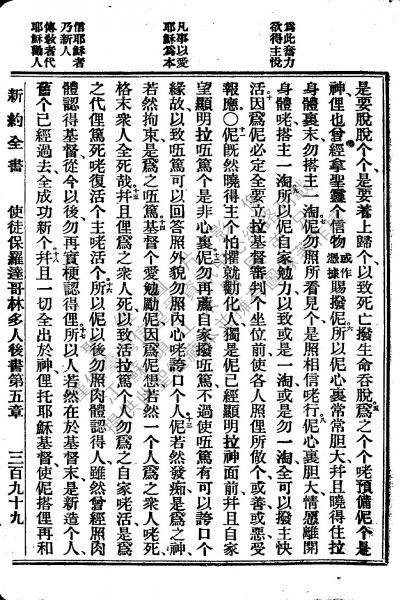 爲此奮力
欲得主悅
凡事以愛
耶穌爲本
信耶穌者
乃新人
傳敎者代
耶穌勸人
是要脫脫个个、是要着上歸个以致死亡撥生命吞脫爲之个个咾預備伲个是
神俚也曾經拿聖靈个信物或作憑據賜撥伲所以伲心裏常常胆大幷且曉得住拉
身體裏末勿搭主一淘伲勿照所看見个是照相信咾行伲心裏胆大情愿離開
身體咾搭主一淘所以伲自家勉力以致或是一淘或是勿一淘全可以撥主快
活因爲伲必定全要立拉基督審判个坐位前使各人照俚所做个或善或惡受
報應○伲旣然曉得主个怕懼就勸化人獨是伲已經顯明拉神面前幷且自家
望顯明拉唔篤个是非心裏伲勿再薦自家撥唔篤不過使唔篤有可以誇口个
緣故以致唔篤可以回答照外貌勿照內心咾誇口个人伲若然發痴是爲之神
若然拘束是爲之唔篤基督个愛勉勵伲因爲伲想若然一个人爲之衆人咾死
格末衆人全死哉幷且俚爲之衆人死以致活拉个人勿爲之自家咾活是爲
之代俚篤死咾復活个主咾活个所以伲以後勿照肉體認得人雖然曾經照肉
體認得基督從今以後勿再實梗認得俚所以人若然在於基督末是新造个人、
舊个已經過去全成功新个幷且一切全出於神俚托耶穌基督使伲搭俚再和
新約全書 使徒保羅達哥林多人後書第五章 三百九十九